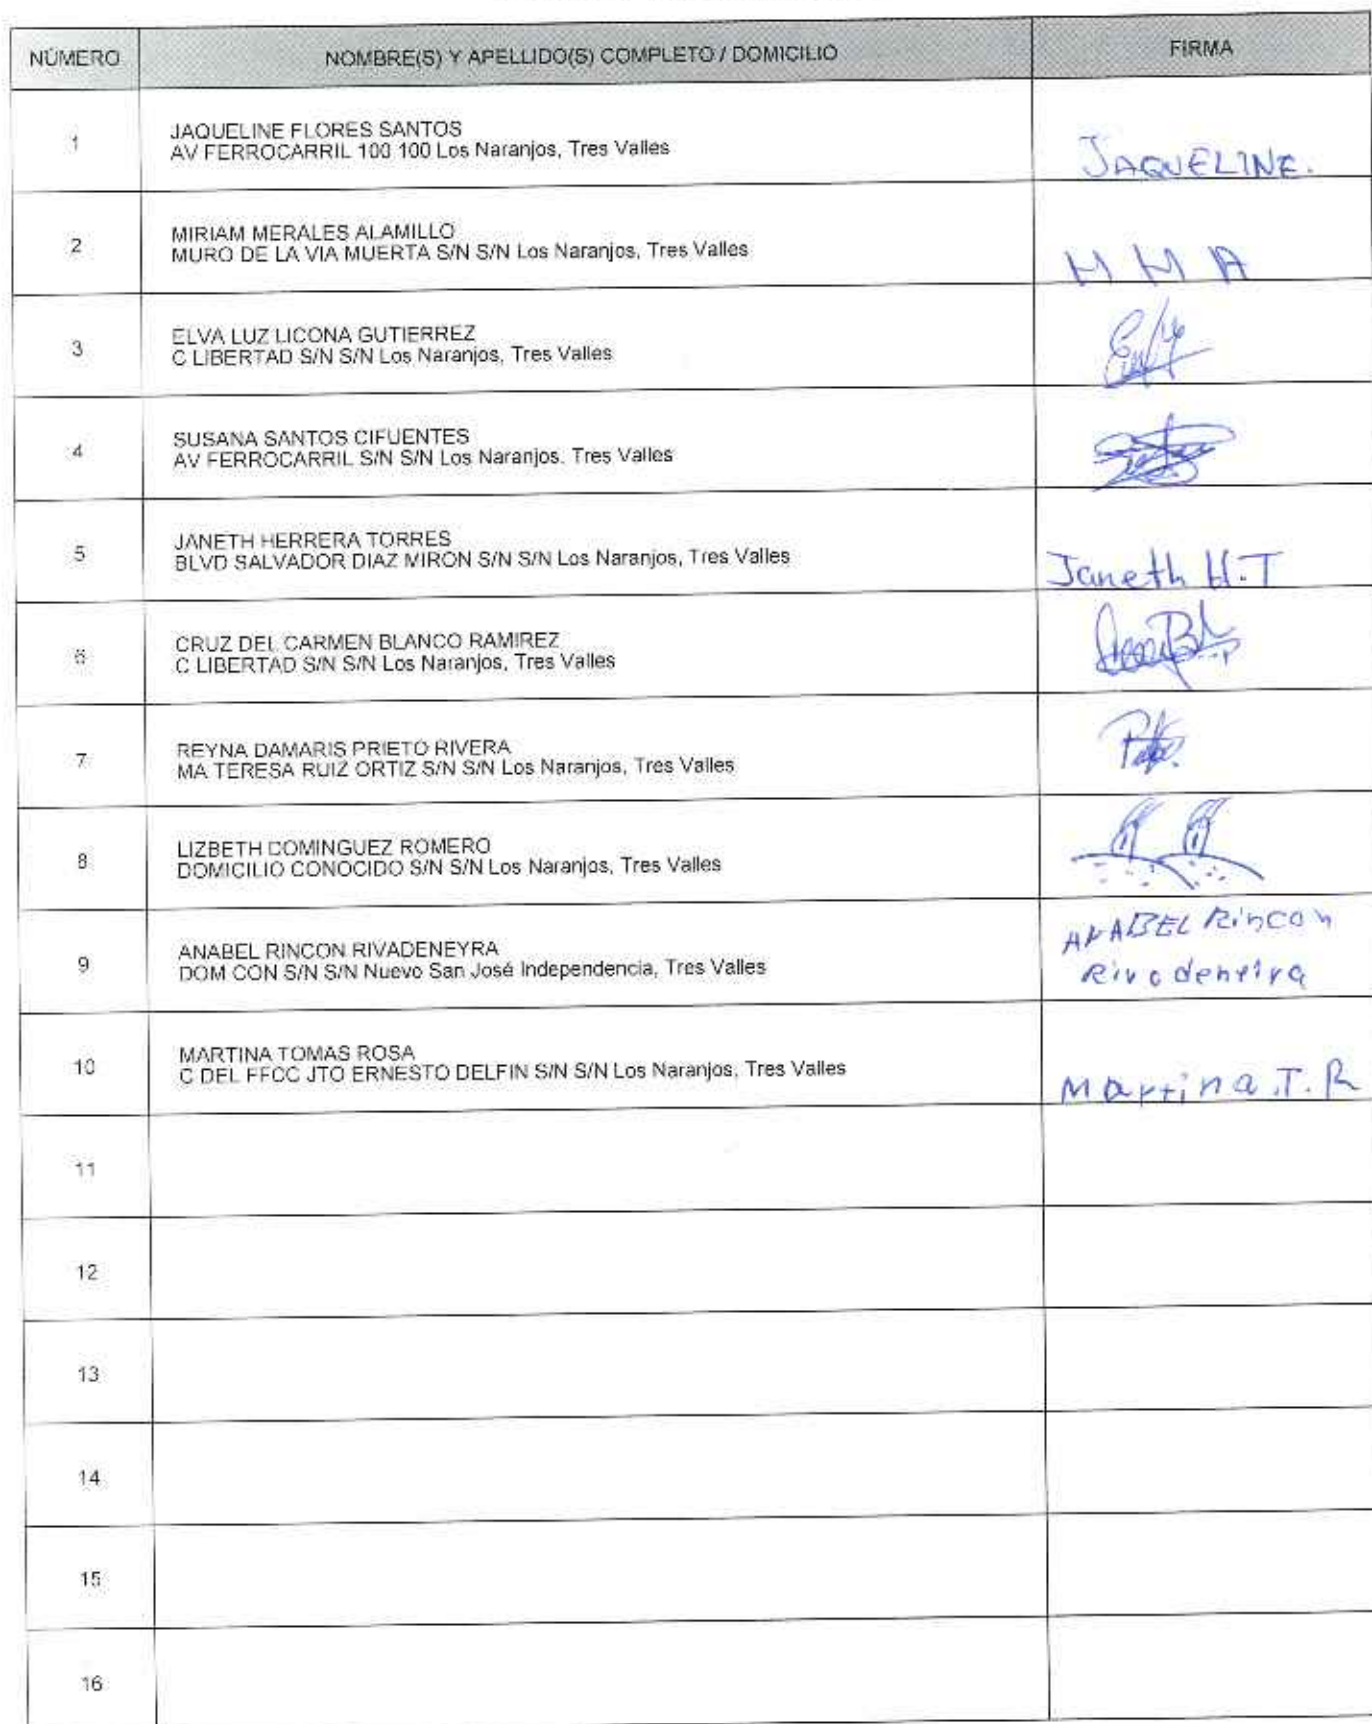 NÚMERO NOMBRE(S) Y APELLIDO(S) COMPLETO / DOMICILIO FIRMA
1 JAQUELINE FLORES SANTOS
AV FERROCARRIL 100 100 Los Naranjos, Tres Valles
JAQUELINE.
2 MIRIAM MERALES ALAMILLO
MURO DE LA VIA MUERTA S/N S/N Los Naranjos, Tres Valles
M M A
3 ELVA LUZ LICONA GUTIERREZ
C LIBERTAD S/N S/N Los Naranjos, Tres Valles
4 SUSANA SANTOS CIFUENTES
AV FERROCARRIL S/N S/N Los Naranjos, Tres Valles
5 JANETH HERRERA TORRES
BLVD SALVADOR DIAZ MIRON S/N S/N Los Naranjos, Tres Valles
Janeth H.T
6 CRUZ DEL CARMEN BLANCO RAMIREZ
C LIBERTAD S/N S/N Los Naranjos, Tres Valles
7 REYNA DAMARIS PRIETO RIVERA
MA TERESA RUIZ ORTIZ S/N S/N Los Naranjos, Tres Valles
8 LIZBETH DOMINGUEZ ROMERO
DOMICILIO CONOCIDO S/N S/N Los Naranjos, Tres Valles
9 ANABEL RINCON RIVADENEYRA
DOM CON S/N S/N Nuevo San José Independencia, Tres Valles
ANABEL Rincon
Rivadeneira
10 MARTINA TOMAS ROSA
C DEL FFCC JTO ERNESTO DELFIN S/N S/N Los Naranjos, Tres Valles
Martina.T.R
11
12
13
14
15
16